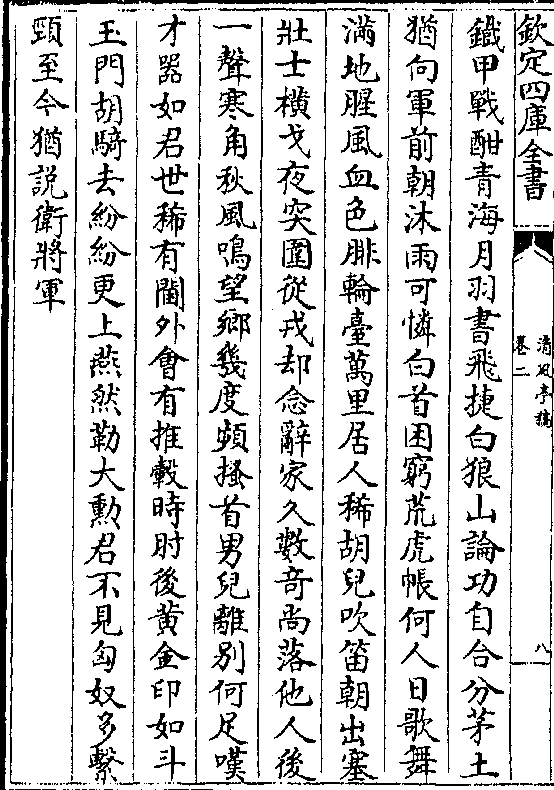 欽定四庫全書
清風亭稿
卷二
八
鐵甲戰酣青海月羽書飛捷白狼山論功自合分茅土
猶向軍前朝沐雨可憐白首困窮荒虎帳何人日歌舞
滿地腥風血色腓輪臺萬里居人稀胡兒吹笛朝出塞
壯士橫戈夜突圍從戎却念辭家久數竒尚落他人後
一聲寒角秋風鳴望鄉幾度頻搔首男兒離別何足嘆
才器如君世稀有閫外會有推轂時肘後黄金印如斗
玉門胡騎去紛紛更上燕然勒大勲君不見匈奴多繫
頸至今猶説衛將軍